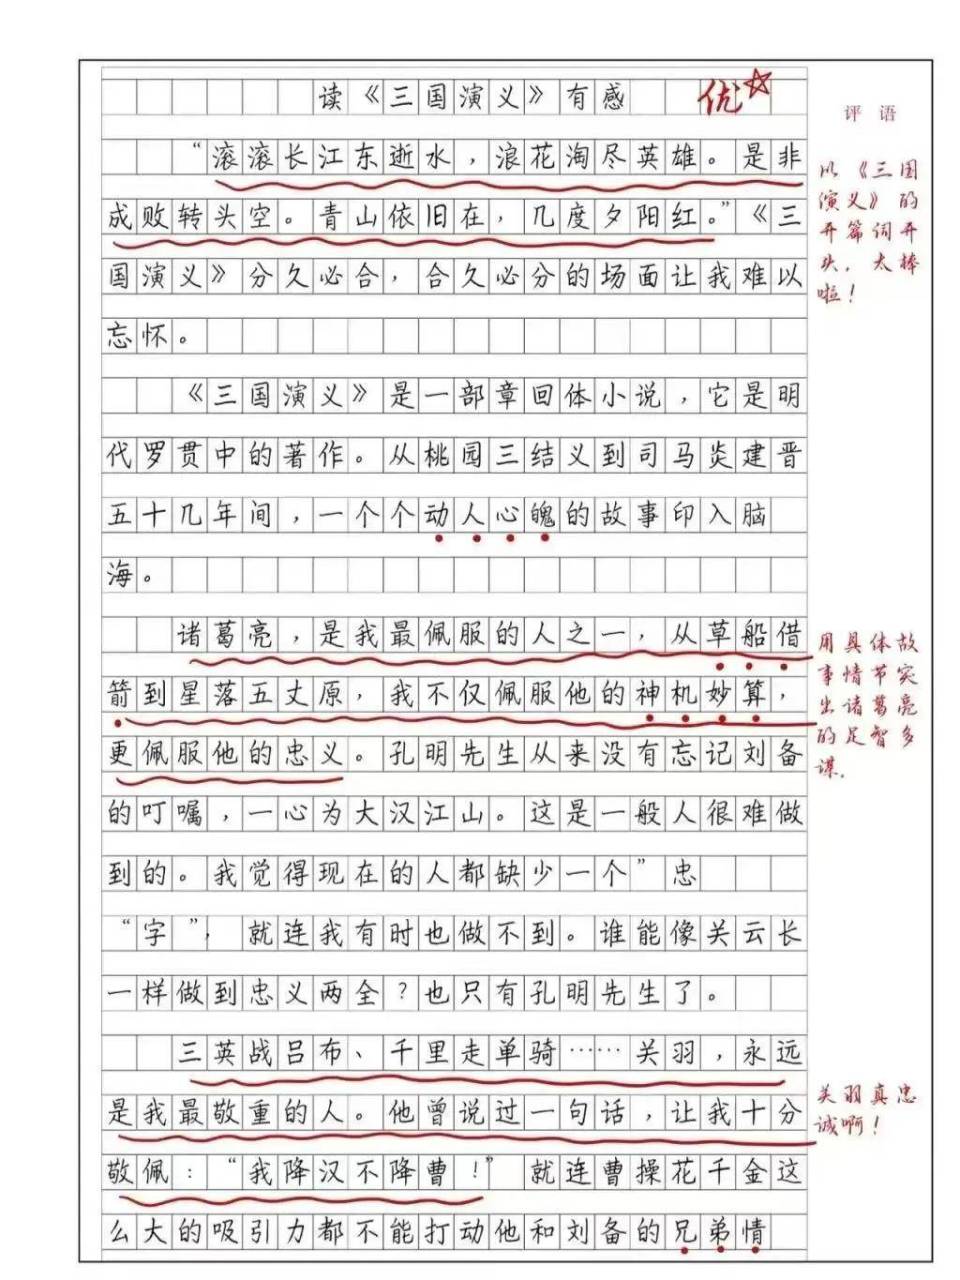 读《三国演义》有感
优
评语
“滚滚长江东逝水，浪花淘尽英雄。是非
成败转头空。青山依旧在，几度夕阳红。”《三
国演义》分久必合，合久必分的场面让我难以
忘怀。
以《三国
演义》的
开篇词开
头，太棒
啦！
《三国演义》是一部章回体小说，它是明
代罗贯中的著作。从桃园三结义到司马炎建晋
五十几年间，一个个动人心魄的故事印入脑
海。
诸葛亮，是我最佩服的人之一，从草船借
箭到星落五丈原，我不仅佩服他的神机妙算，
更佩服他的忠义。孔明先生从来没有忘记刘备
的叮嘱，一心为大汉江山。这是一般人很难做
到的。我觉得现在的人都缺少一个”忠
“字”，就连我有时也做不到。谁能像关云长
一样做到忠义两全？也只有孔明先生了。
用具体故
事情节突
出诸葛亮
的足智多
谋。
三英战吕布、千里走单骑……关羽，永远
是我最敬重的人。他曾说过一句话，让我十分
敬佩：“我降汉不降曹！”就连曹操花千金这
么大的吸引力都不能打动他和刘备的兄弟情
关羽真忠
诚啊！